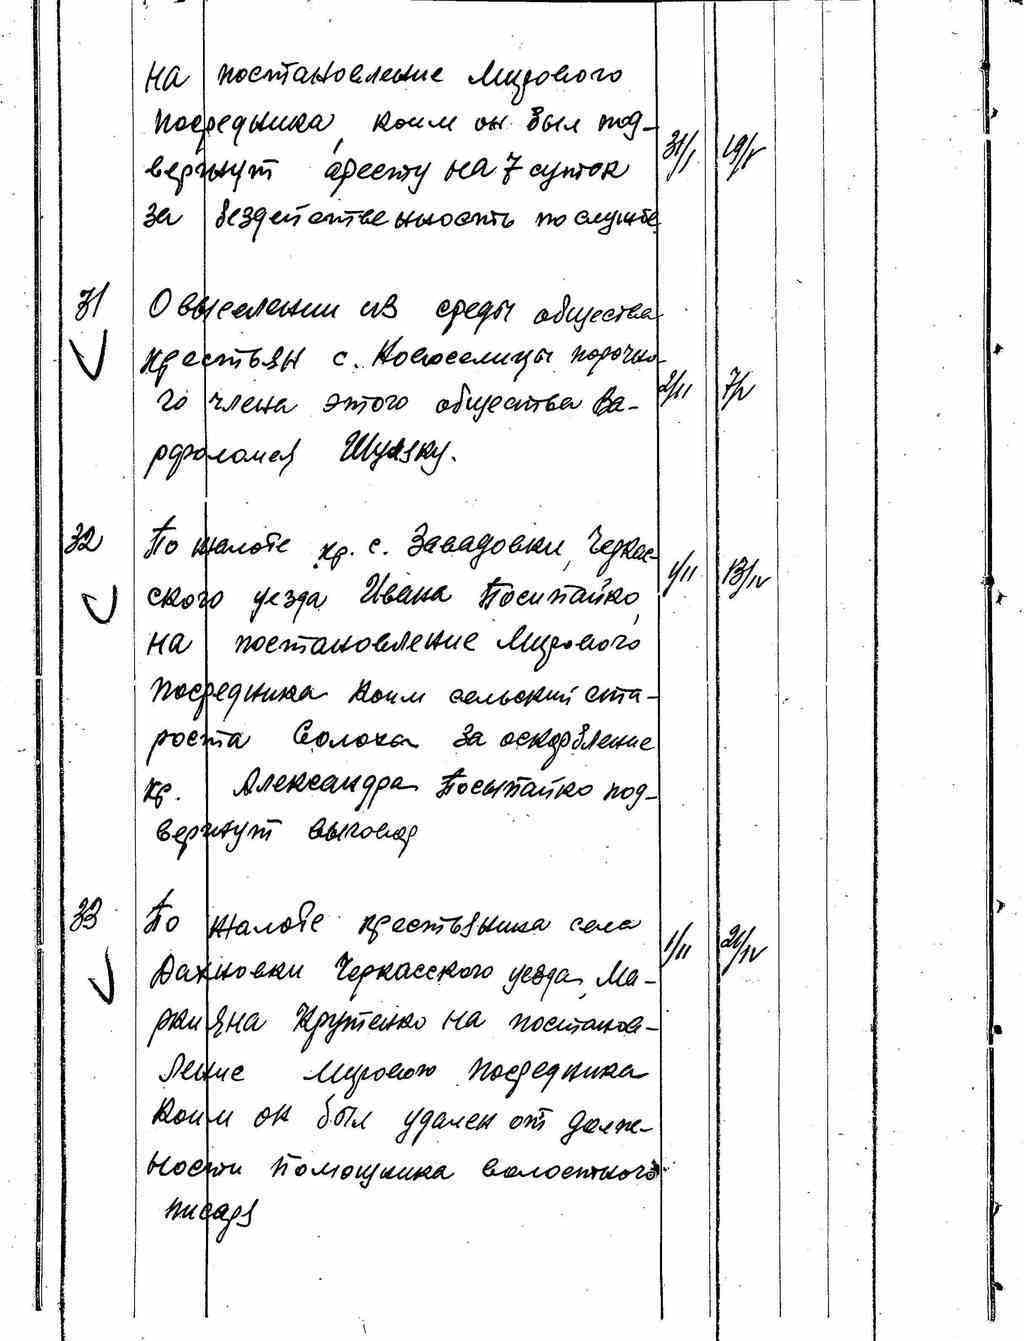 на постановление Мирового
Посредника, коим он был под-
вергнут аресту на 7 суток 31/I 19/V
за бездейственность по службе
31 О выселении из среды общества
крестьян с. Новоселицы порочно-
го члена этого общества Ва- 2/II 7/V
рфоломея Шуляку.
32 По жалобе кр. с. Завадовки, Черкас-
ского уезда Ивана Посипайко, 1/II 13/IV
на постановление Мирового
Посредника коим сельский ста-
роста Солоха за оскорбление
кр. Александра Посыпайко под-
вергнут выговор
33 По жалобе крестьянина села
Дахновки Черкасского уезда, Ма- 1/II 21/IV
ркияна Крутенко на постанов-
ление Мирового Посредника
коим он был удален от долж-
ности помощника волостного
писаря